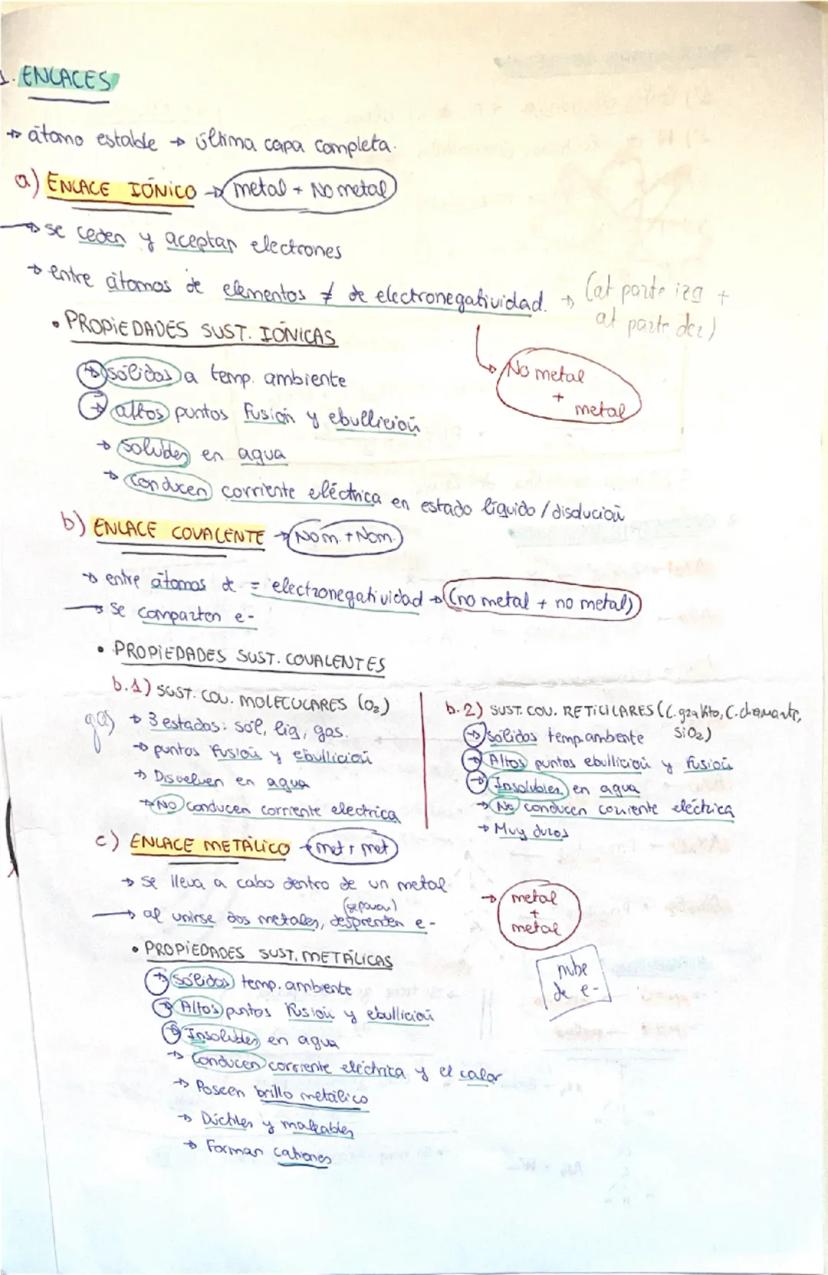 1. ENLACES
→ átomo estable → última capa completa.
a) ENLACE IÓNICO → metal + No metal
→ se ceden y aceptan electrones
→ entre átomos de elementos ≠ de electronegatividad. → (at parte izq +
at parte der)
No metal
+
metal
• PROPIEDADES SUST. IÓNICAS
→ sólidos a temp. ambiente
→ altos puntos fusión y ebullición
→ solubles en agua
→ conducen corriente eléctrica en estado líquido / disolución
b) ENLACE COVALENTE → No m. + No m.
→ entre átomos de = electronegatividad → (no metal + no metal)
→ se comparten e-
• PROPIEDADES SUST. COVALENTES
b.1) SUST. COV. MOLECULARES (O₂)
gas
→ 3 estados: sól, liq, gas.
→ puntos fusión y ebullición
→ Disuelven en agua
→ NO conducen corriente electrica
b.2) SUST. COV. RETICILARES (C. grafito, C. diamante,
SiO₂)
→ sólidos temp ambiente
→ Altos puntos ebullición y fusión
→ Insolubles en agua
→ No conducen corriente eléctrica
→ Muy duros
c) ENLACE METÁLICO → met + met
→ se lleva a cabo dentro de un metal
(separan)
→ al unirse dos metales, desprenden e-
→ metal
+
metal
nube
de e-
• PROPIEDADES SUST. METÁLICAS
→ sólidos temp. ambiente
→ Altos puntos fusión y ebullición
→ Insolubles en agua
→ conducen corriente eléctrica y el calor
→ Poseen brillo metálico
→ Dúctiles y maleables
→ Forman cationes